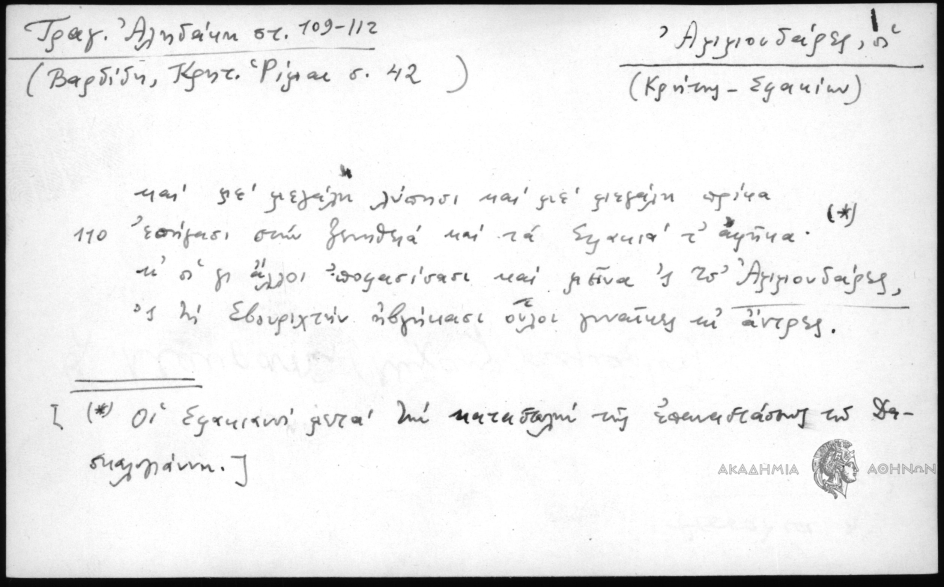 Τραγ. Ἀληδάκη στ. 109-112
(Βαρδίδη, Κρητ. Ῥίμαι σ. 42)
Ἀμμουδάρες, οἱ
(Κρήτης - Σφακίων)
καὶ μὲ μεγάλη λύπησι καὶ μὲ μεγάλη πρίκα
110 ἐπήγασι στὴν ξενηθειὰ καὶ τὰ Σφακιὰ τ' ἀφῆκα. (*)
κ' οἱ γι ἄλλοι ἀποφασίσασι καὶ μεῖνα 'ς τσ' Ἀμμουδάρες,
'ς τὴ Σβουριχτὴν ἠβγήκασι οὗλοι γυναῖκες κι' ἄντρες.
[(*) Οἱ Σφακιανοὶ μετὰ τὴν καταστολὴ τῆς ἐπαναστάσεως τοῦ Δα-
σκαλογιάννη.]
ΑΚΑΔΗΜΙΑ ΑΘΗΝΩΝ